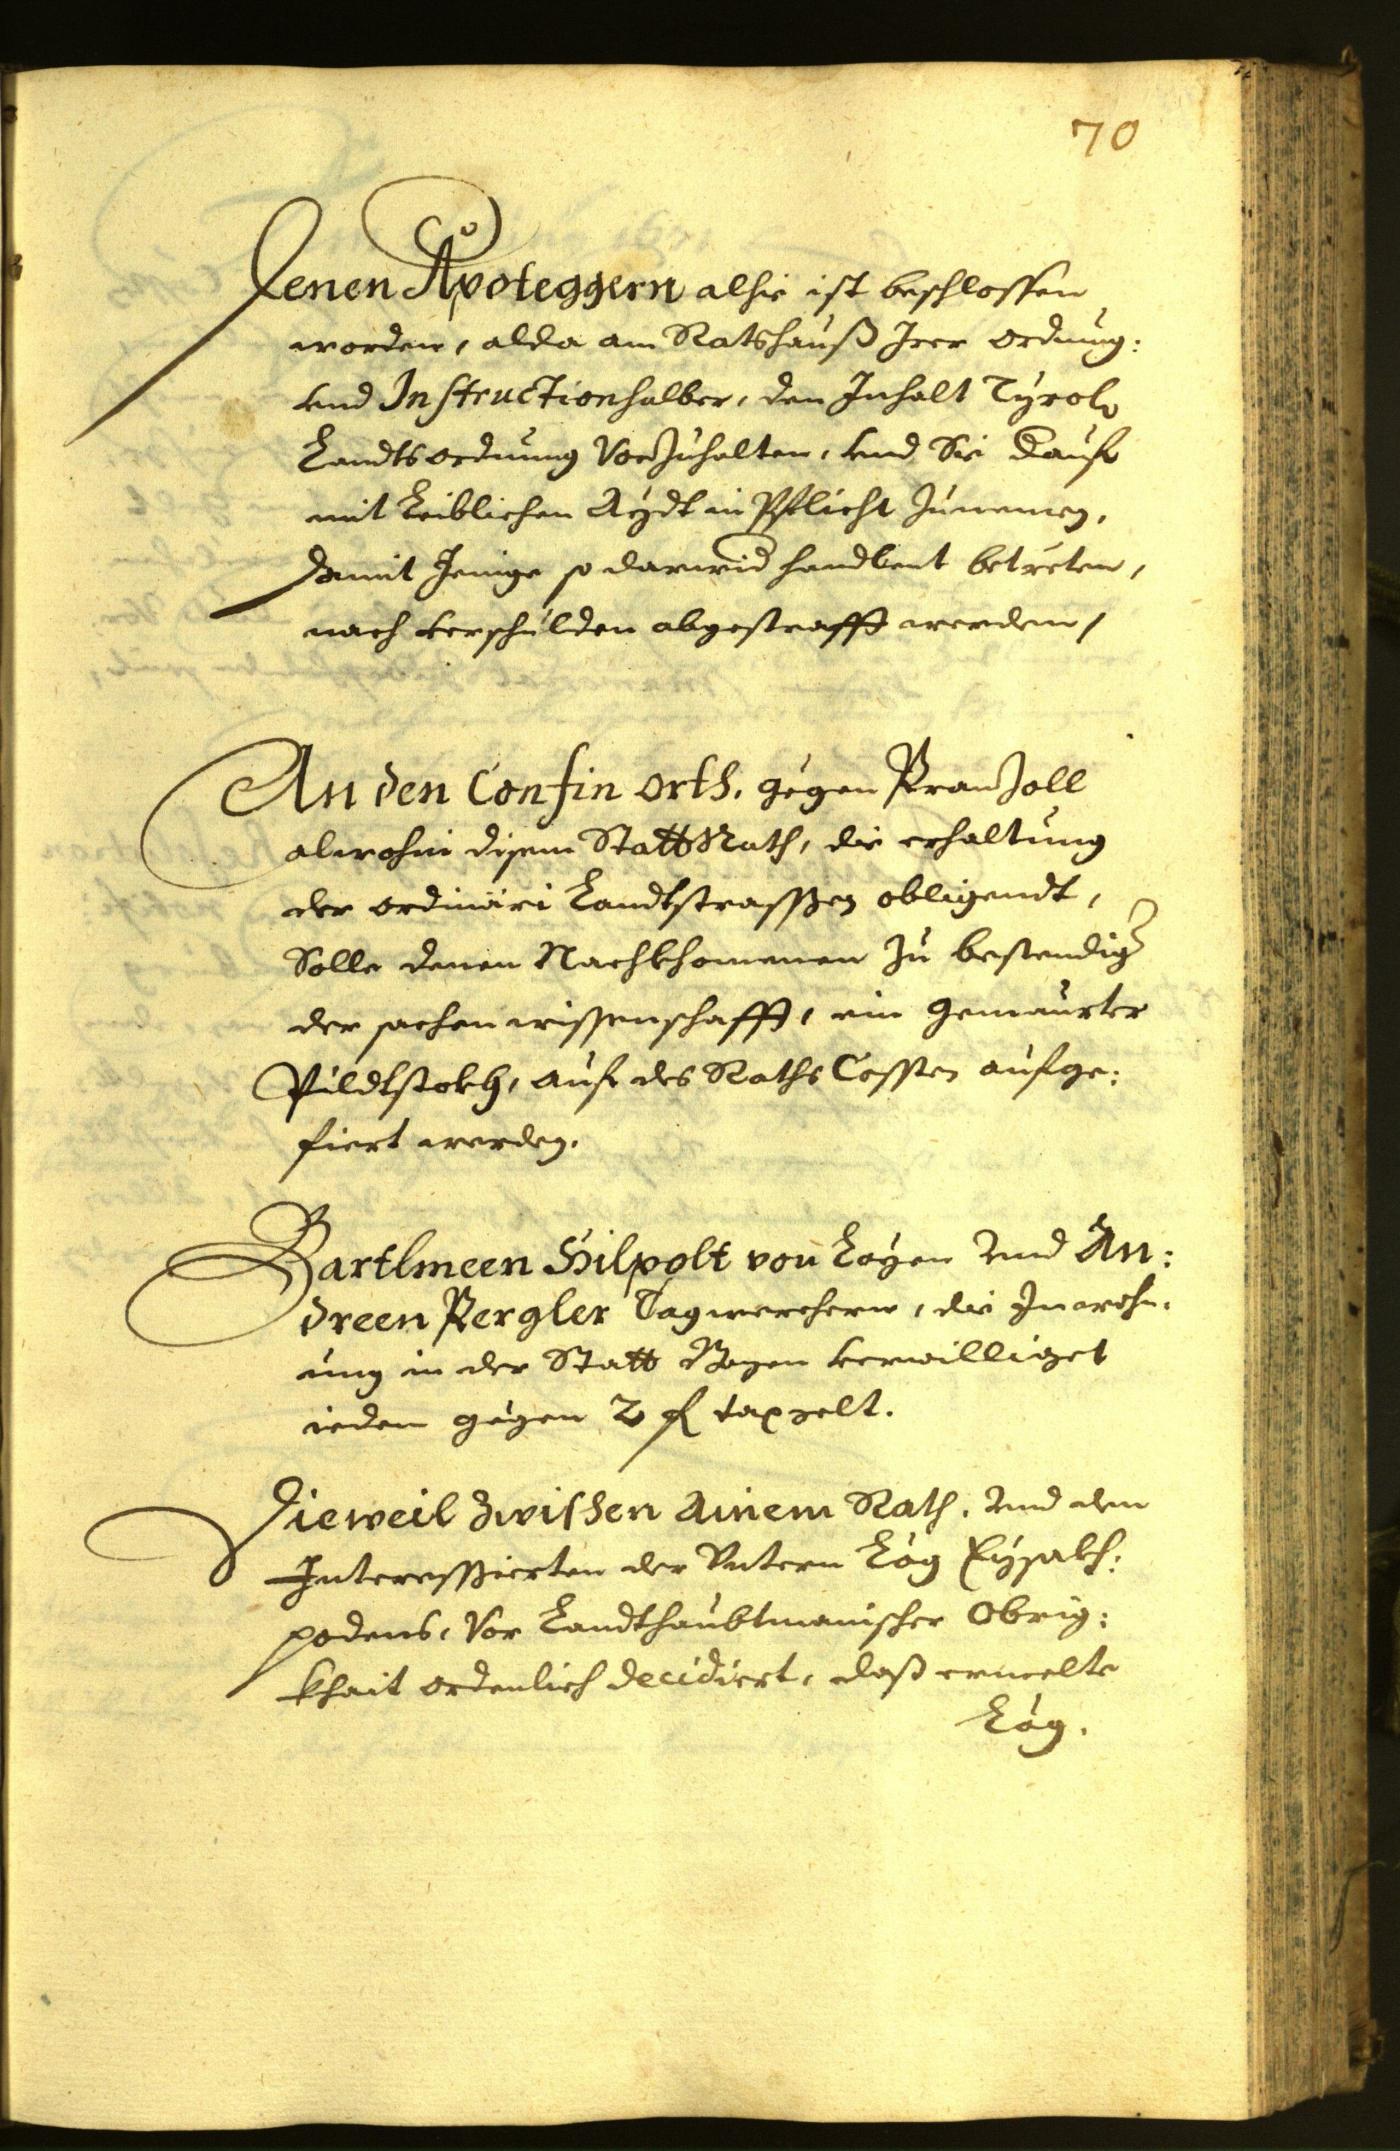 70
Denen Apoteggern alhie ist beschlossen
worden, alda am Ratshauß Irer ordnung:
vnd Instructionhalber, den Inhalt Tyrol.
Landtsordnung vorzuhalten, vnd Sie dauf
mit Leiblichen Aydt in Pflicht zunemen,
damit Jenige so darwid handlent betreten,
nach verschulden abgestrafft werden,
An den Confin orth, gegen Pranzoll
alwohin disem Statt Rath, die erhaltung
der ordinäri Landtstrassen obligendt,
Solle denen Nachkhomenen zu bestendig
der sachen wissenschafft, ein gemaurter
Pildtstokh, auf des Raths Cossten aufge:
fiert werden.
Bartlmeen Hilpolt von Layen vnd An:
dreen Pergler Tagwerchern, die Inwohn,
ung in der Statt Bozen verwilliget
ieden gegen 2 fl taxgelt.
Dieweil zwischen Ainem Rath, vnd den
Interessierten der Vntern Läg Eysakh:
podens, vor Landthaubtmanischer Obrig:
khait ordenlich decidiert, daß ermelte
Läg.